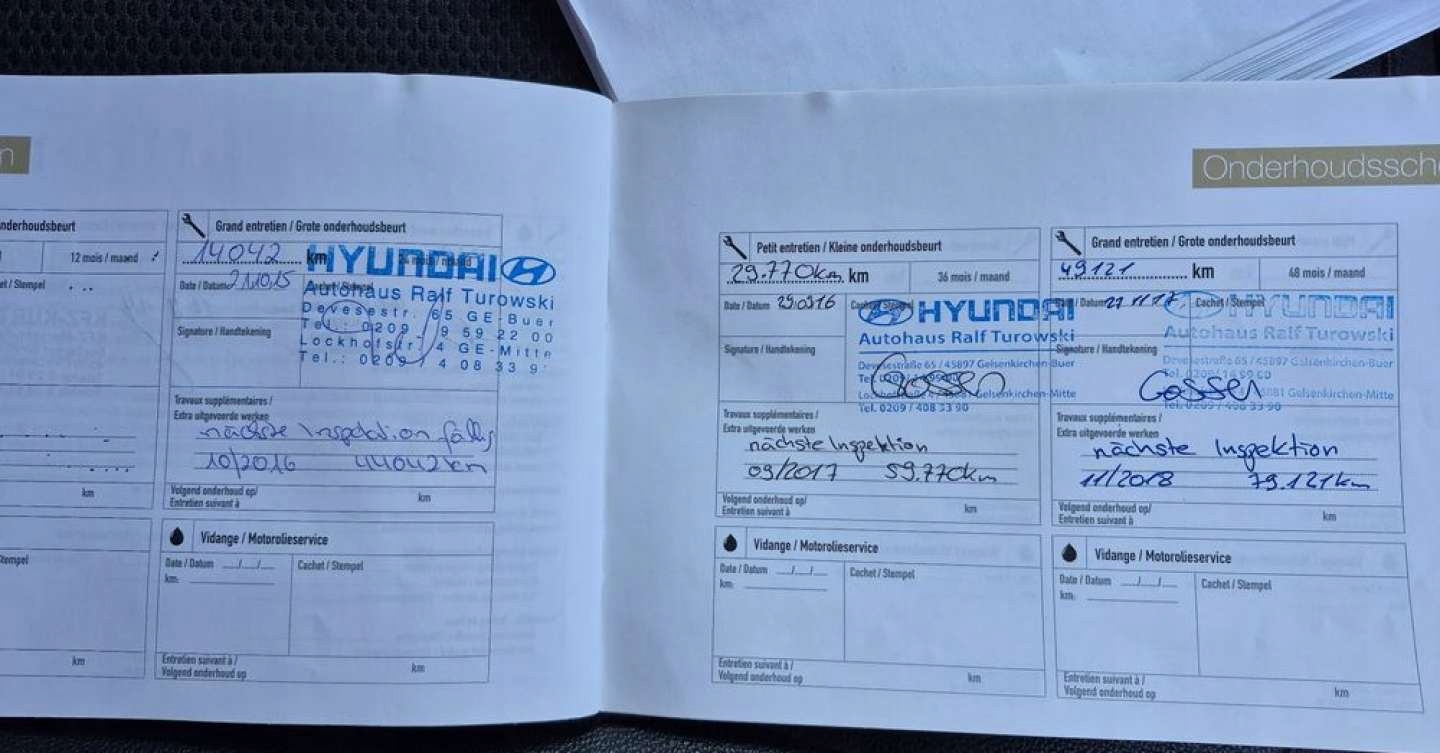 n
Onderhoudssch
nderhoudsbeurt
12 mois / maand
et / Stempel
km
Stempel
km
Grand entretien / Grote onderhoudsbeurt
14042 km
HYUNDAI
Date / Datum 21.10.15
Autohaus Ralf Turowski
Devesestr. 65 GE-Buer
Tel.: 0209 / 9 59 22 00
Signature / Handtekening
Lockhofstr. 4 GE-Mitte
Tel.: 0209 / 4 08 33 9
Travaux supplémentaires /
Extra uitgevoerde werken
nächste Inspektion fällig
10/2016 44042km
Volgend onderhoud op/
Entretien suivant à km
Vidange / Motorolieservice
Date / Datum __/__/__ Cachet / Stempel
km:
Entretien suivant à /
Volgend onderhoud op km
Petit entretien / Kleine onderhoudsbeurt
29.770km. km 36 mois / maand
Date / Datum 29.09.16
HYUNDAI
Autohaus Ralf Turowski
Signature / Handtekening
Devesestraße 65 / 45897 Gelsenkirchen-Buer
Gelsenkirchen-Mitte
Tel. 0209 / 408 33 90
Travaux supplémentaires /
Extra uitgevoerde werken
nächste Inspektion
09/2017 59.770km
Volgend onderhoud op/
Entretien suivant à km
Vidange / Motorolieservice
Date / Datum __/__/__ Cachet / Stempel
km:
Entretien suivant à /
Volgend onderhoud op km
Grand entretien / Grote onderhoudsbeurt
49121 km 48 mois / maand
Datum 21.11.17 Cachet / Stempel
HYUNDAI
Autohaus Ralf Turowski
Signature / Handtekening
Devesestraße 65 / 45897 Gelsenkirchen-Buer
Gelsenkirchen-Mitte
Tel. 0209 / 408 33 90
Travaux supplémentaires /
Extra uitgevoerde werken
nächste Inspektion
11/2018 79.121km
Volgend onderhoud op/
Entretien suivant à km
Vidange / Motorolieservice
Date / Datum __/__/__ Cachet / Stempel
km:
Entretien suivant à /
Volgend onderhoud op km